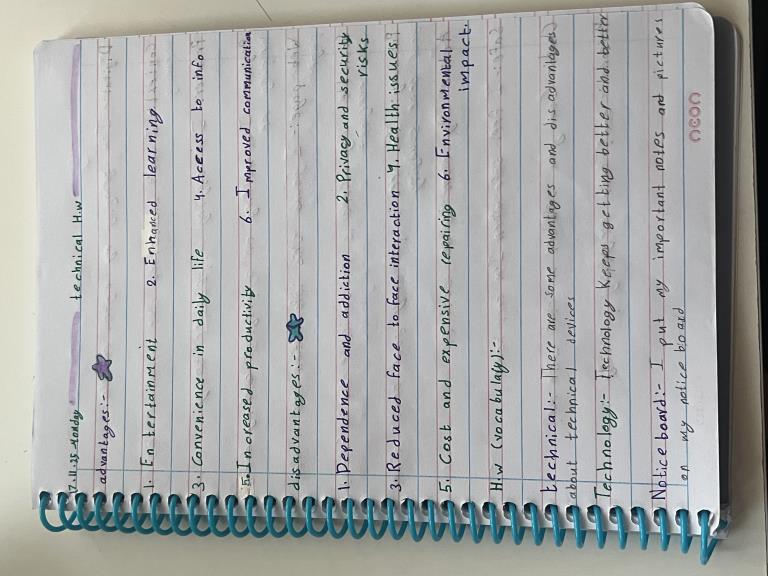 17.11.25 Monday technical H.w
advantages:-
1. Entertainment 2. Enhanced learning
3. Convenience in daily life 4. Access to info.
5. Increased productivity 6. Improved communication
disadvantages:-
1. Dependence and addiction 2. Privacy and security
risks
3. Reduced face to face interaction 4. Health issues
5. Cost and expensive repairing 6. Environmental
impact.
H.w (vocabulary):-
technical:- There are some advantages and disadvantages
about technical devices
Technology:- Technology Keeps getting better and better
Notice board:- I put my important notes and pictures
on my notice board
neon